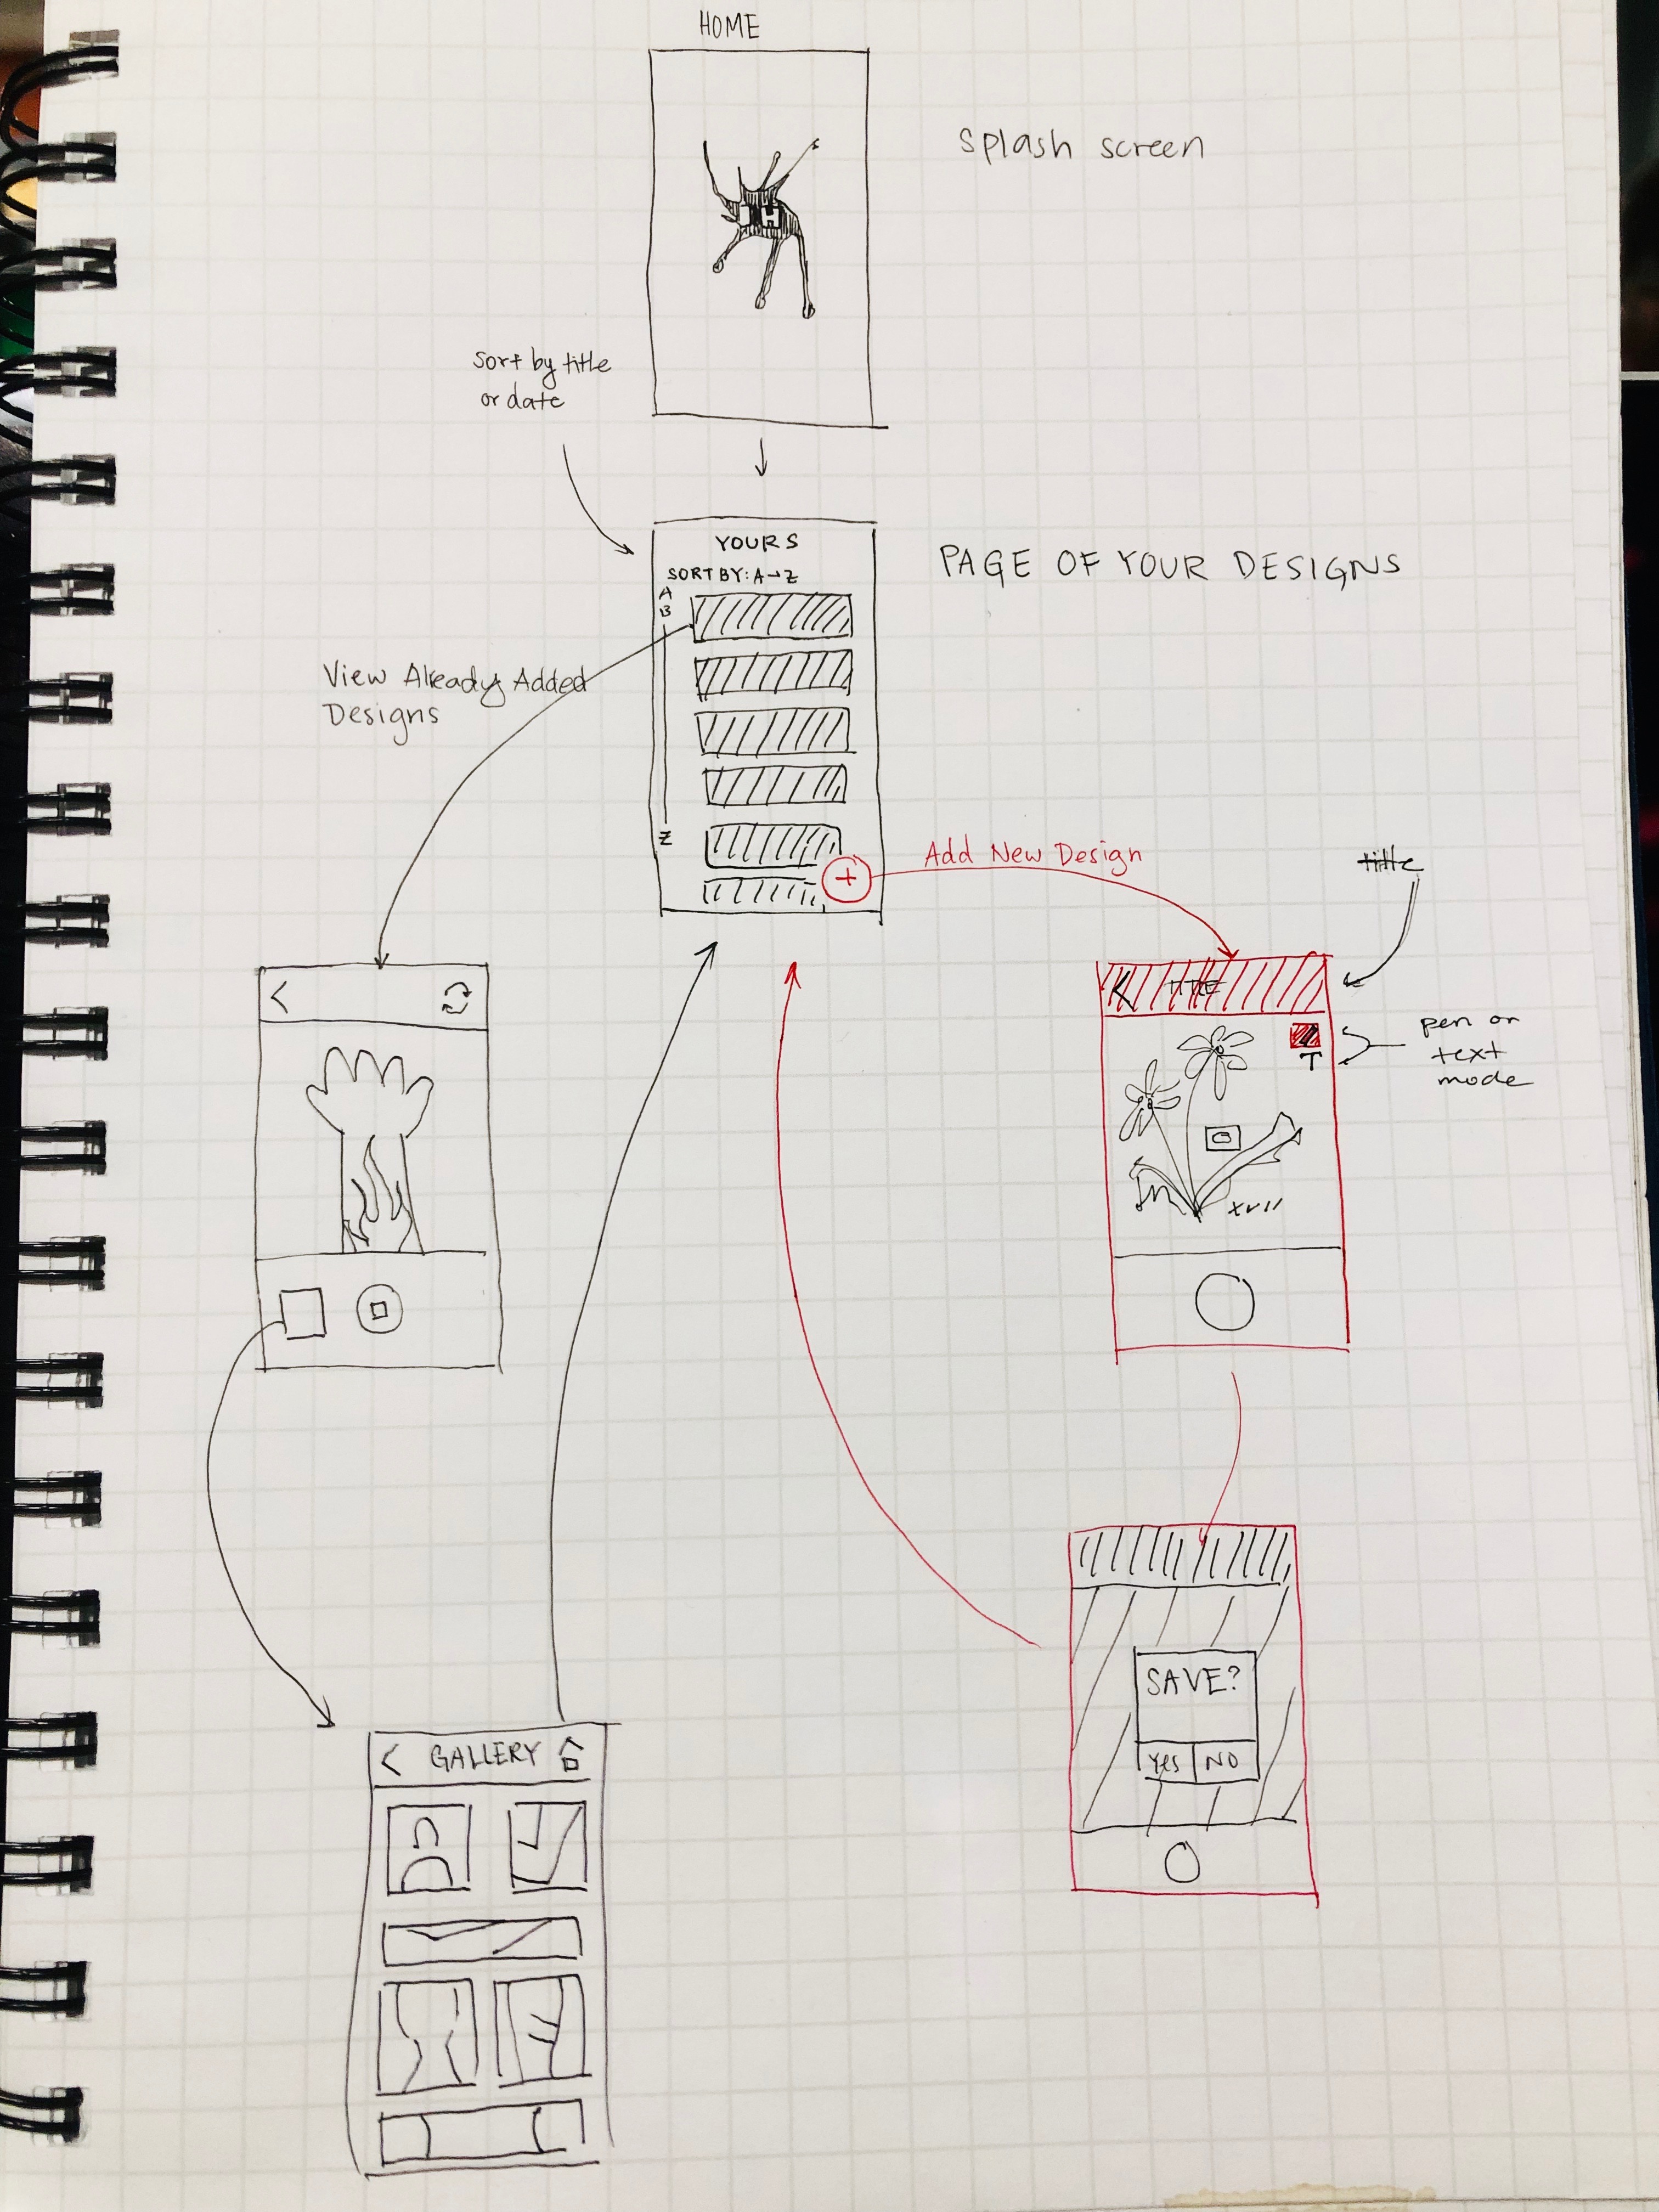 HOME
splash screen
sort by title
or date
YOURS
SORT BY: A→Z
A
B
Z
PAGE OF YOUR DESIGNS
View Already Added
Designs
Add New Design
title
TITLE
T
pen or
text
mode
XVII
SAVE?
YES NO
< GALLERY